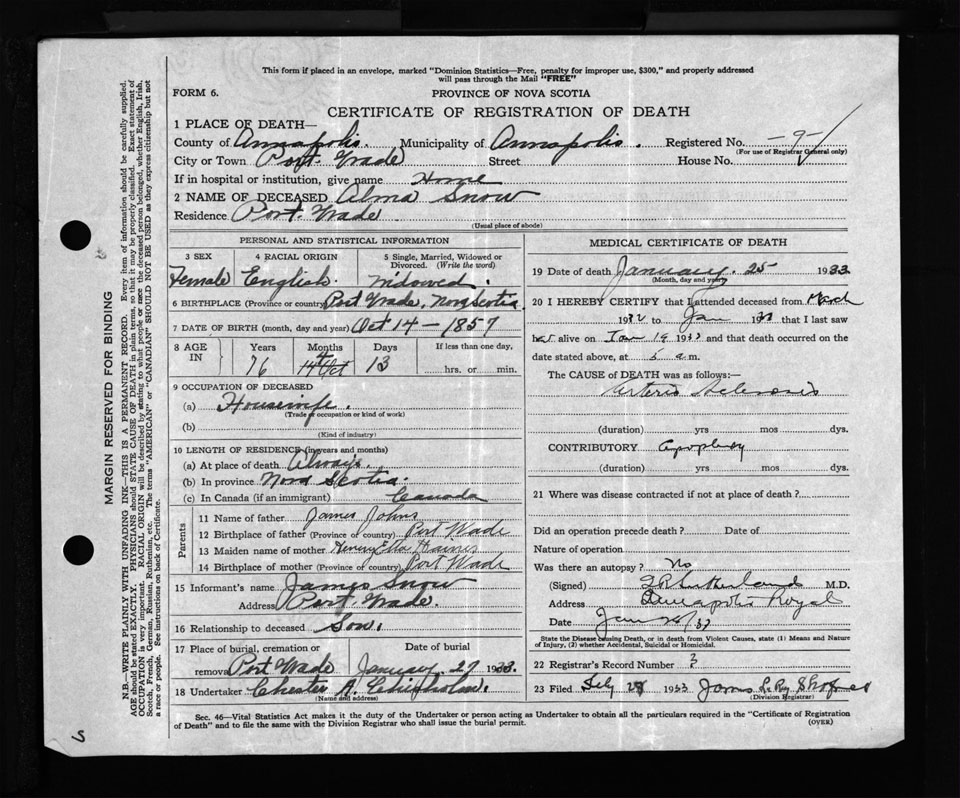 This form if placed in an envelope, marked "Dominion Statistics—Free, penalty for improper use, $300," and properly addressed
will pass through the Mail "FREE"
FORM 6. PROVINCE OF NOVA SCOTIA
CERTIFICATE OF REGISTRATION OF DEATH
1 PLACE OF DEATH—
County of Annapolis. Municipality of Annapolis. Registered No. -9-
(For use of Registrar General only)
City or Town Port Wade Street House No.
If in hospital or institution, give name Home
2 NAME OF DECEASED Alma Snow
Residence Port Wade
(Usual place of abode)
PERSONAL AND STATISTICAL INFORMATION
3 SEX 4 RACIAL ORIGIN 5 Single, Married, Widowed or Divorced. (Write the word)
Female English. Widowed.
6 BIRTHPLACE (Province or country) Port Wade, Nova Scotia.
7 DATE OF BIRTH (month, day and year) Oct 14 - 1857
8 AGE IN Years Months Days If less than one day,
76 13 hrs. or min.
9 OCCUPATION OF DECEASED
(a) Housewife.
(Trade or occupation or kind of work)
(b)
(Kind of industry)
10 LENGTH OF RESIDENCE (in years and months)
(a) At place of death Always.
(b) In province Nova Scotia.
(c) In Canada (if an immigrant) Canada
Parents
11 Name of father James Johns
12 Birthplace of father (Province or country) Port Wade
13 Maiden name of mother Haines
14 Birthplace of mother (Province or country) Port Wade
15 Informant's name James Snow
Address Port Wade.
16 Relationship to deceased Son.
17 Place of burial, cremation or Date of burial
removal Port Wade January 27 1933.
18 Undertaker Chester A. Chisholm.
(Name and address)
MEDICAL CERTIFICATE OF DEATH
19 Date of death January 25 1933
(Month, day and year)
20 I HEREBY CERTIFY that I attended deceased from March
1932 to Jan 1933 that I last saw
her alive on Jan 19 1933 and that death occurred on the
date stated above, at 5 a m.
The CAUSE OF DEATH was as follows:—
Arterio Sclerosis
(duration) yrs mos dys.
CONTRIBUTORY Apoplexy
(duration) yrs. mos. dys.
21 Where was disease contracted if not at place of death?
Did an operation precede death? Date of
Nature of operation
Was there an autopsy? No
(Signed) Sutherland M.D.
Address Annapolis Royal
Date Jan
State the Disease causing Death, or in death from Violent Causes, state (1) Means and Nature
of Injury, (2) whether Accidental, Suicidal or Homicidal.
22 Registrar's Record Number 3
23 Filed 1933 James
(Division Registrar)
Sec. 46—Vital Statistics Act makes it the duty of the Undertaker or person acting as Undertaker to obtain all the particulars required in the "Certificate of Registration
of Death" and to file the same with the Division Registrar who shall issue the burial permit. (OVER)
MARGIN RESERVED FOR BINDING
N.B.—WRITE PLAINLY WITH UNFADING INK—THIS IS A PERMANENT RECORD. Every item of information should be carefully supplied.
AGE should be stated EXACTLY. PHYSICIANS should STATE CAUSE OF DEATH in plain terms, so that it may be properly classified. Exact statement of
OCCUPATION is very important. RACIAL ORIGIN will be described by stating to what people or race the deceased person belonged, whether English, Irish,
Scotch, French, German, Russian, Ruthenian, etc. The terms "AMERICAN" or "CANADIAN" SHOULD NOT BE USED as they express citizenship but not
a race or people. See instructions on back of Certificate.
S